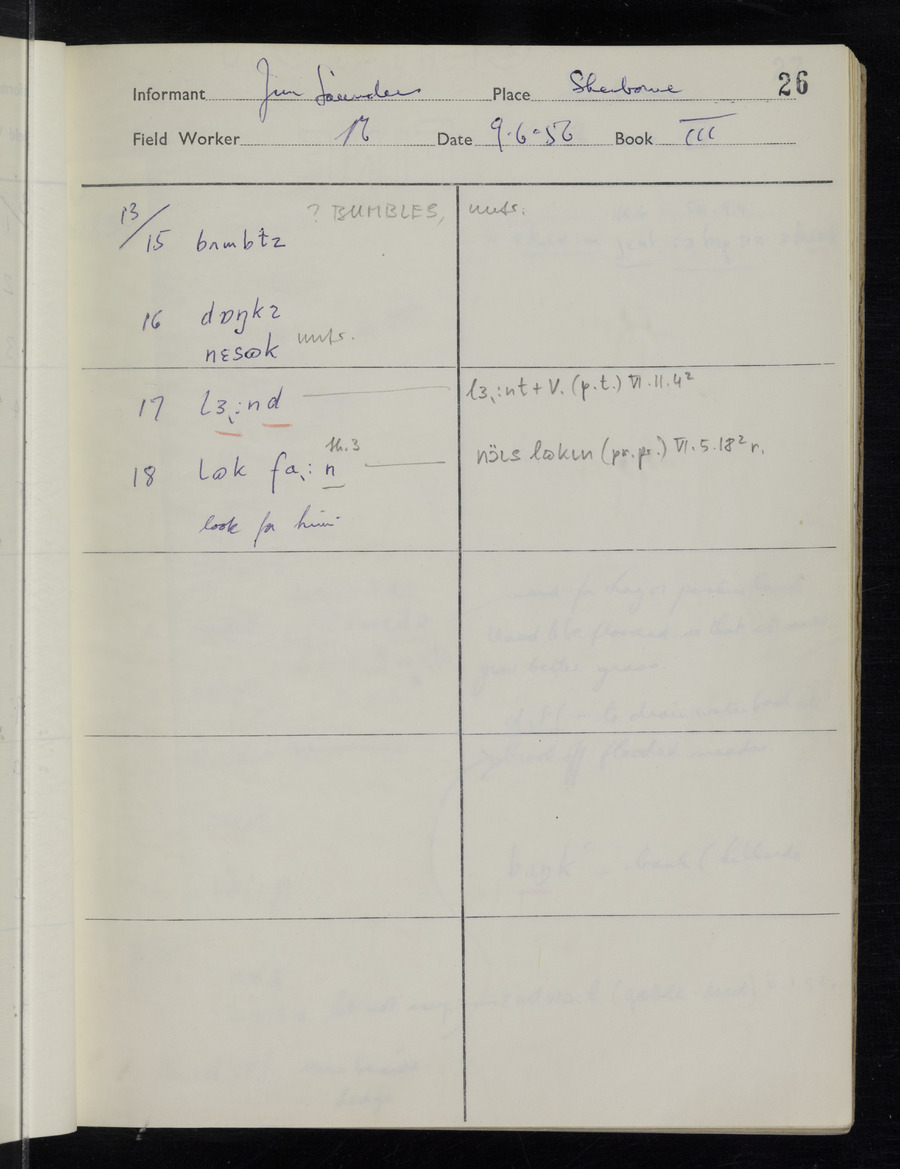 Informant Jim Saunders Place Sherborne 26
Field Worker Date 9·6·56 Book III
13/15 bʌmbɫz ? BUMBLES, unts.
16 dɒŋkz
nɛsɷk unts.
17 lɜ˛:nd lɜ˛:nt + V. (p.t.) VI.11.4²
18 lɷk fa˛:n th.3 nöɩs lɷkɩn (pr.pr.) VI.5.18² r.
look for him